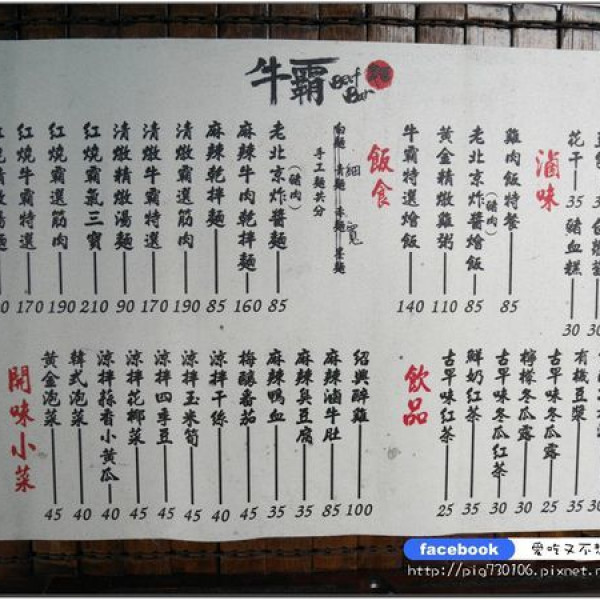 牛霸 Beef Bar
滷味
花干 35
豬血糕 30
飯食
雞肉飯特餐 85
老北京炸醬燴飯 (豬肉) 85
黃金精燉雞粥 110
牛霸特選燴飯 140
手工麵共分
細 寬
老北京炸醬麵 (豬肉) 85
麻辣牛肉乾拌麵 160
麻辣乾拌麵 85
清燉霸選筋肉 190
清燉牛霸特選 170
清燉精燉湯麵 90
紅燒霸氣三寶 210
紅燒霸選筋肉 190
紅燒牛霸特選 170
飲品
有機豆漿 35
古早味冬瓜露 25
檸檬冬瓜露 30
古早味冬瓜紅茶 30
鮮奶紅茶 35
古早味紅茶 25
開味小菜
紹興醉雞 100
麻辣滷牛肚 85
麻辣臭豆腐 35
麻辣鴨血 35
梅釀番茄 45
涼拌干絲 40
涼拌玉米筍 45
涼拌四季豆 45
涼拌花椰菜 45
涼拌蒜香小黃瓜 40
韓式泡菜 40
黃金泡菜 45
facebook 愛吃又不想
http://pig730106.pixnet.n